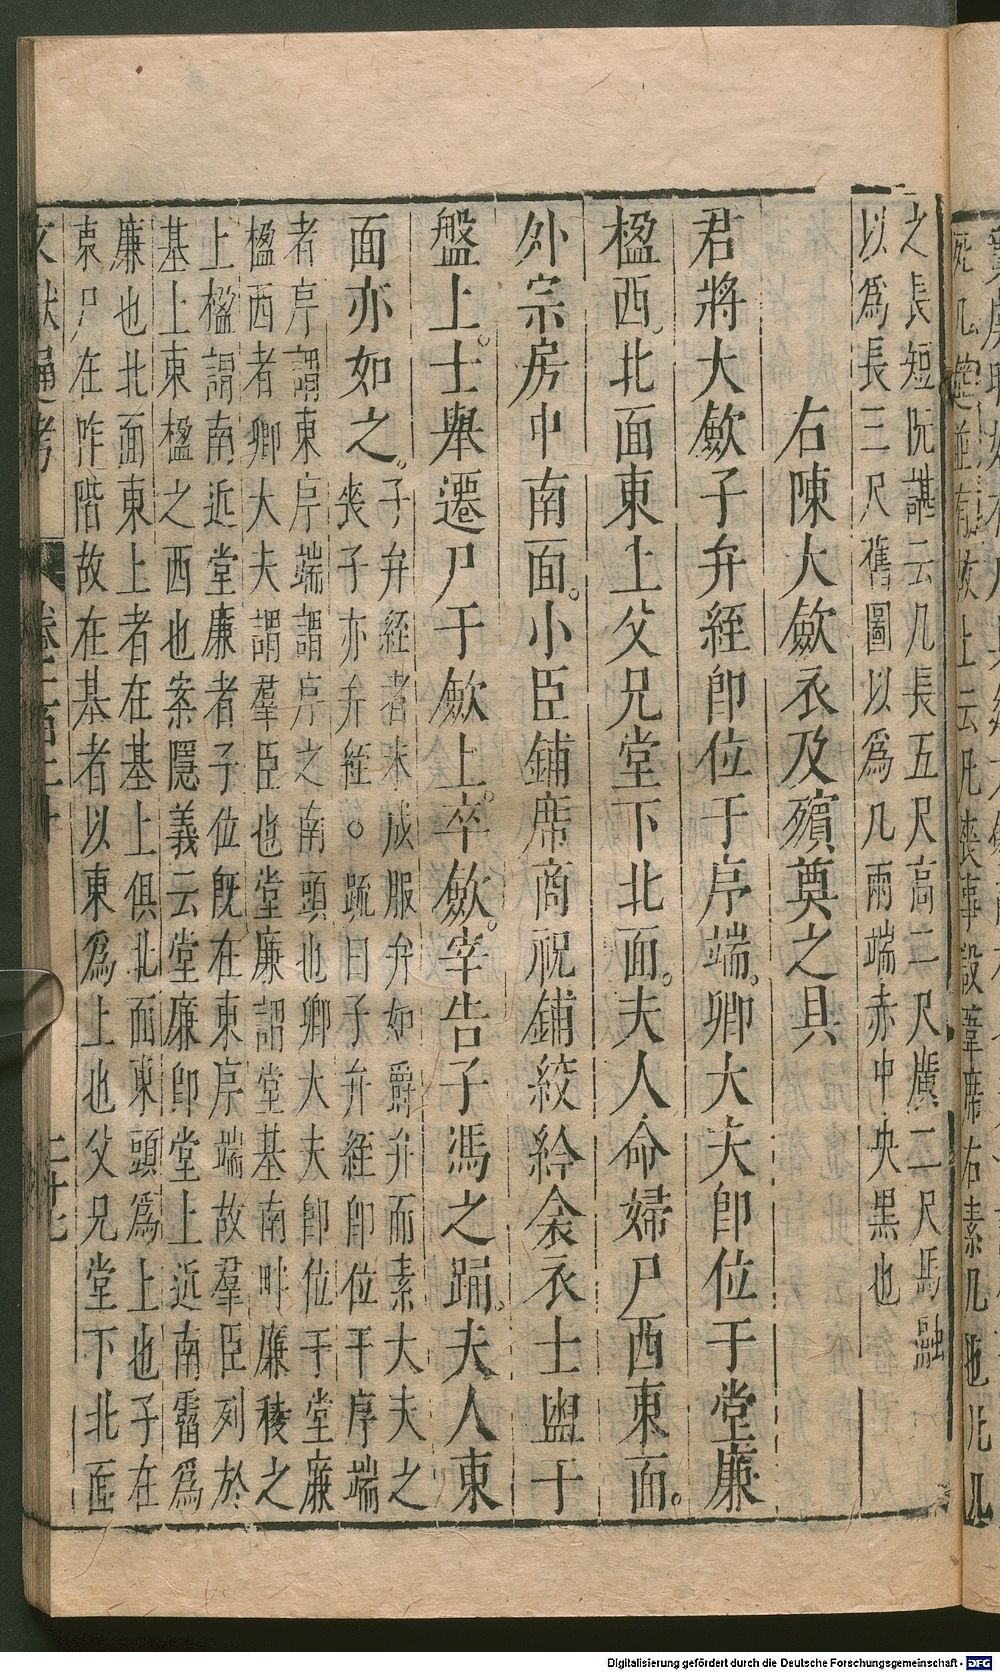 之長短阮諶云几長五尺高二尺廣二尺馬融
以爲長三尺舊圖以爲几兩端赤中央黑也
右陳大歛衣及殯奠之具
君將大歛子弁絰卽位于序端。卿大夫卽位于堂廉
楹西。北面東上父兄堂下北面。夫人命婦尸西東面。
外宗房中南面。小臣鋪席商祝鋪絞紟衾衣士盥于
盤上。士舉遷尸于歛上。卒歛。宰告子馮之踊。夫人東
面亦如之。
子弁絰者未成服弁如爵弁而素大夫之
喪子亦弁絰。○疏曰子弁絰卽位于序端
者序謂東序端謂序之南頭也卿大夫卽位于堂廉
楹西者卿大夫謂羣臣也堂廉謂堂基南畔廉稜之
上楹謂南近堂廉者子位旣在東序端故羣臣列於
基上東楹之西也案隱義云堂廉卽堂上近南霤爲
廉也北面東上者在基上俱北面東頭爲上也子在
東尸在阼階故在基者以東爲上也父兄堂下北面
文獻通考
Digitalisierung gefördert durch die Deutsche Forschungsgemeinschaft - DFG